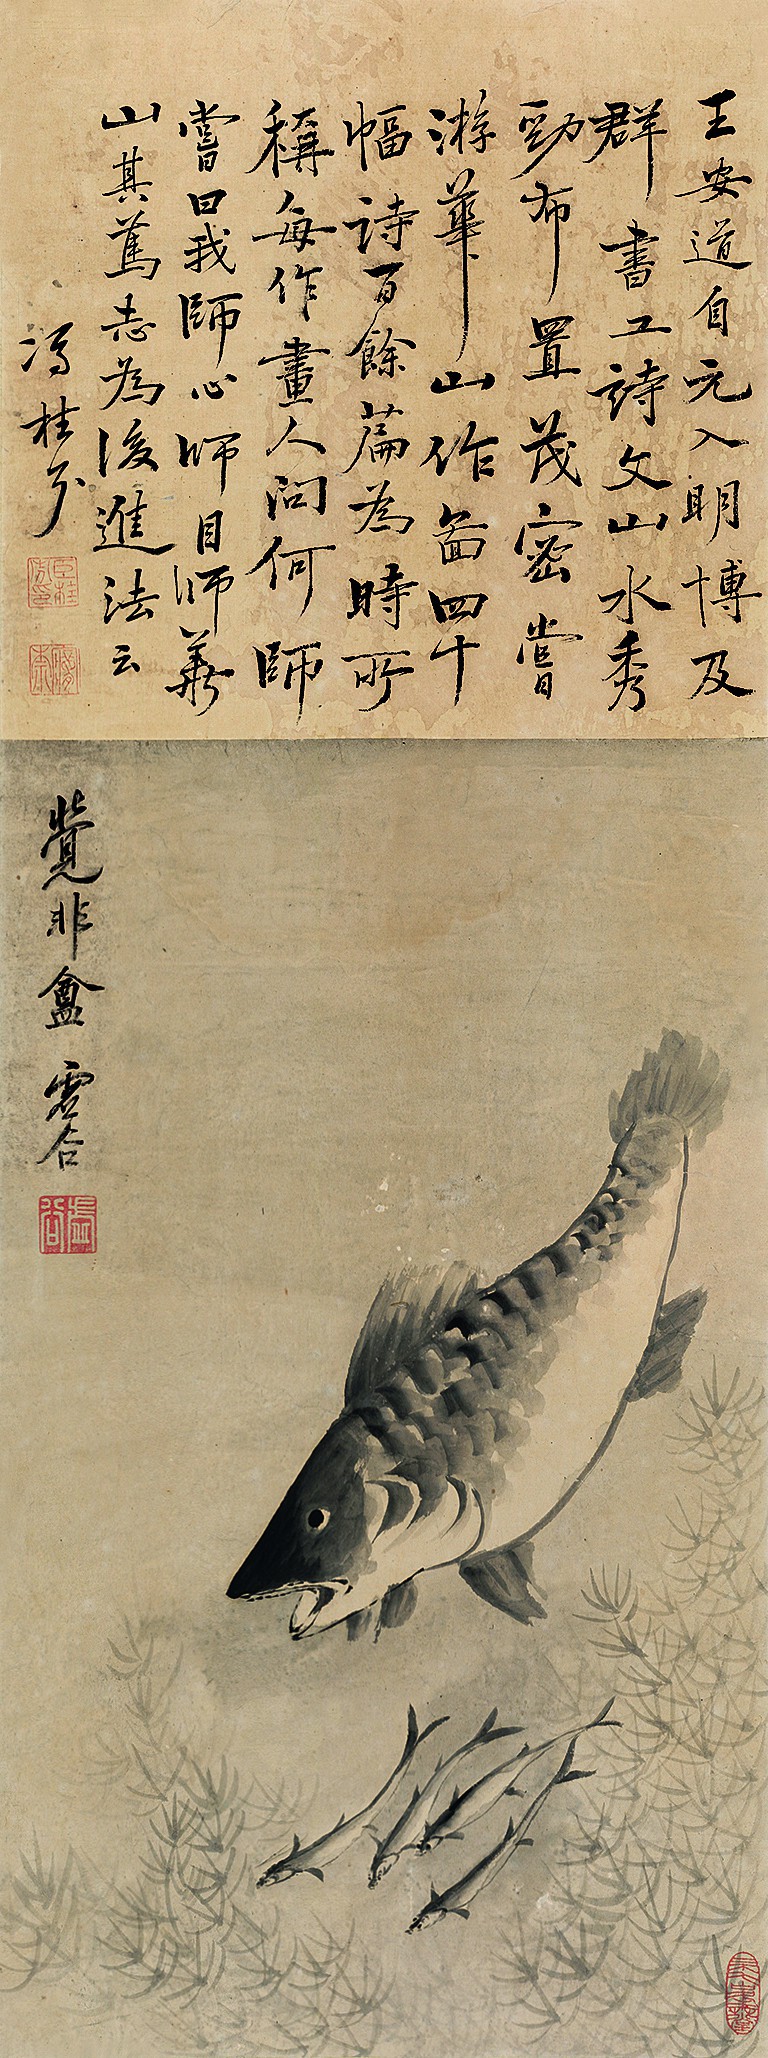 王安道自元入明博及
群書工詩文山水秀
勁布置茂密嘗
游華山作啚四十
幅詩百餘篇為時所
稱每作畫人問何師
嘗曰我師心師目師華
山其篤志為後進法云
馮桂芬
覺非盦 虛谷
虛谷